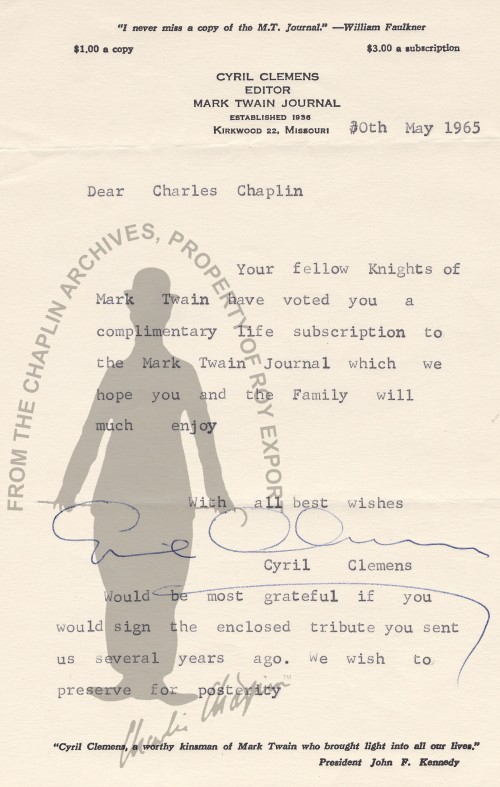 "I never miss a copy of the M.T. Journal." —William Faulkner
$1.00 a copy $3.00 a subscription
CYRIL CLEMENS
EDITOR
MARK TWAIN JOURNAL
ESTABLISHED 1936
KIRKWOOD 22, MISSOURI
30th May 1965
Dear Charles Chaplin
Your fellow Knights of
Mark Twain have voted you a
complimentary life subscription to
the Mark Twain Journal which we
hope you and the Family will
much enjoy
With all best wishes
Cyril Clemens
Cyril Clemens
Would be most grateful if you
would sign the enclosed tribute you sent
us several years ago. We wish to
preserve for posterity
"Cyril Clemens, a worthy kinsman of Mark Twain who brought light into all our lives."
President John F. Kennedy
FROM THE CHAPLIN ARCHIVES, PROPERTY OF ROY EXPORT
Charlie Chaplin